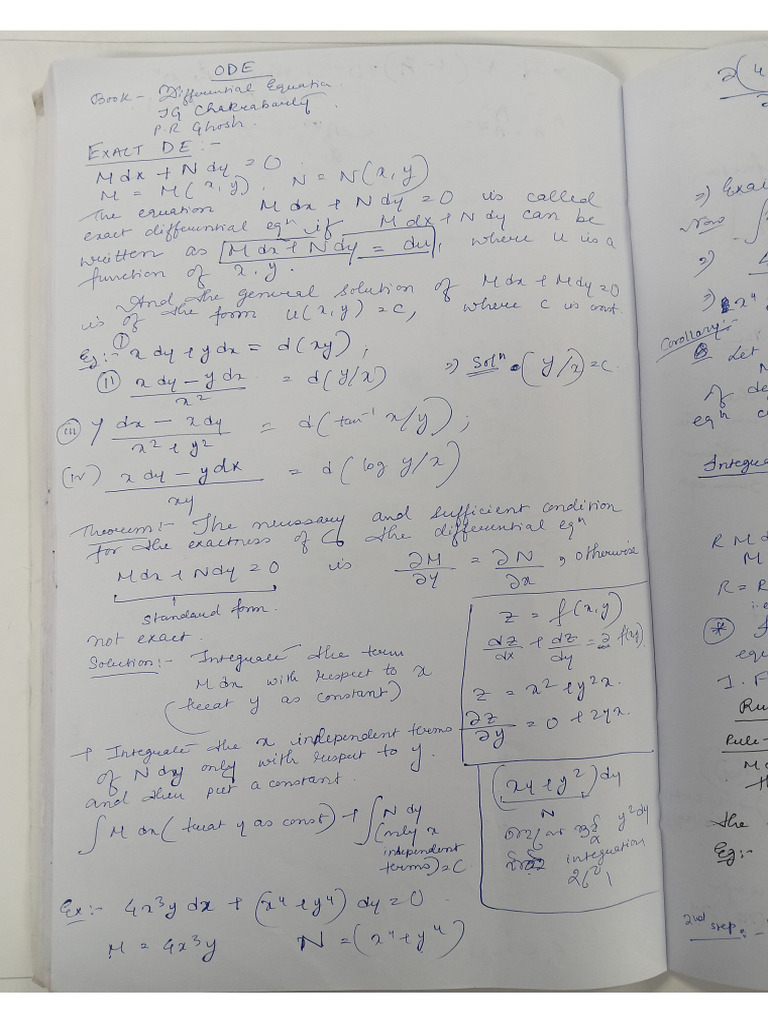 ODE
Book - Differential Equation
JG Chakraborty
P.R Ghosh.
EXACT DE :-
M dx + N dy = 0.
M = M(x, y), N = N(x, y)
The equation M dx + N dy = 0 is called
exact differential eqn if M dx + N dy can be
written as M dx + N dy = du, where u is a
function of x, y.
And the general solution of M dx + M dy = 0
is of the form u(x, y) = c, where c is const.
Eg:- (i) x dy + y dx = d(xy);
(ii) (x dy - y dx)/x² = d(y/x) => Soln. (y/x) = c.
(iii) (y dx - x dy)/(x² + y²) = d(tan⁻¹ x/y);
(iv) (x dy - y dx)/xy = d(log y/x)
Theorem:- The necessary and sufficient condition
for the exactness of the differential eqn
M dx + N dy = 0 is ∂M/∂y = ∂N/∂x, otherwise
standard form.
not exact.
Solution:- Integrate the term
M dx with respect to x
(treat y as constant)
+ Integrate the x independent terms
of N dy only with respect to y.
and then put a constant.
∫ M dx (treat y as const) + ∫ N dy
(only x
independent
terms) = C.
z = f(x, y)
dz/dx + dz/dy = f(x,y).
z = x² + y²x.
∂z/∂y = 0 + 2yx.
(xy + y²) dy
N
y² dy
integration
Ex:- 4x³y dx + (x⁴ + y⁴) dy = 0.
M = 4x³y N = (x⁴ + y⁴)
∂(4
=> Exa
Now
=>
=> x⁴
Corollary:-
Let
M
of de
eqn c
Integra
R M d
M
R = R
i.e
equ
I. F
Ru
Rule-
M d
th
the
Eg:-
2nd step: -